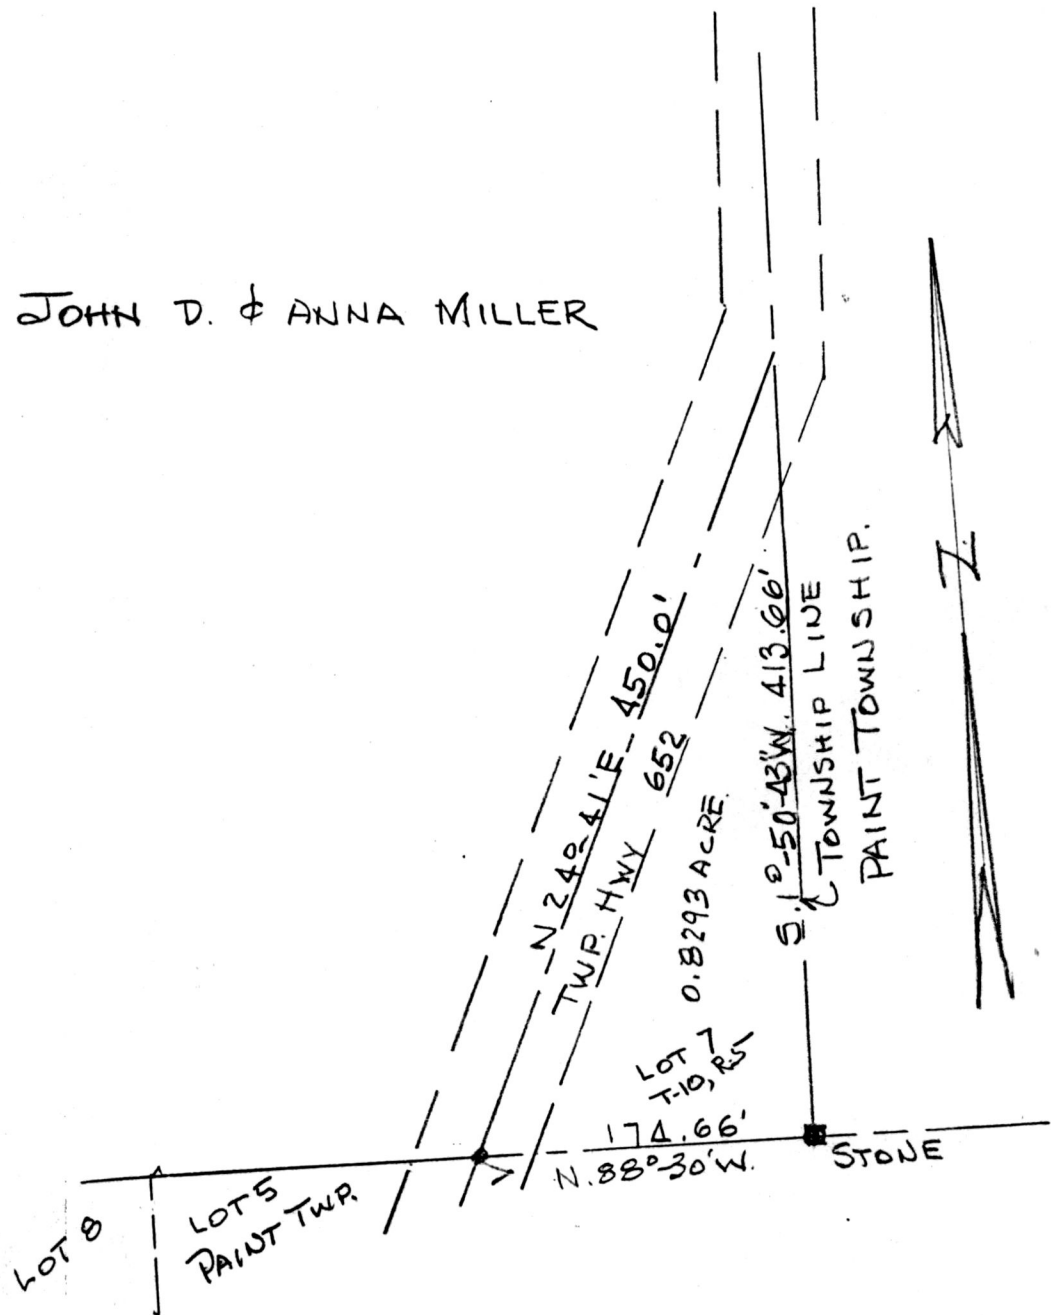 JOHN D. & ANNA MILLER
N 24°-41'E 450.0'
TWP. HWY 652
0.8293 ACRE.
S.1°-50'-43"W. 413.66'
TOWNSHIP LINE
PAINT TOWNSHIP.
Z
LOT 7
T-10, R5
174.66'
N.88°-30'W.
STONE
LOT 8
LOT 5
PAINT TWP.